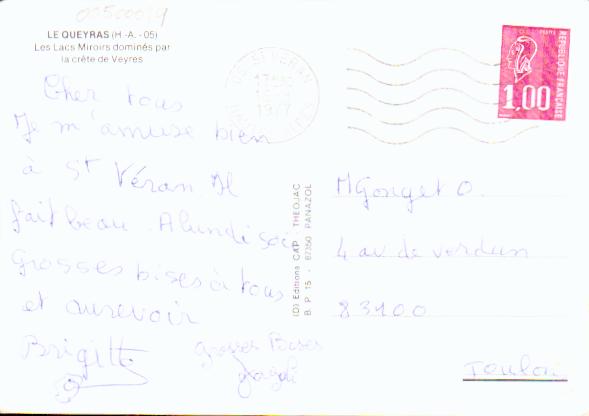 00500019
LE QUEYRAS (H.-A. - 05)
Les Lacs Miroirs dominés par
la crête de Veyres
ST VERAN
Cher tous
Je m'amuse bien
à St Véran Il
fait beau. A lundi soir
Grosses bises à tous
et aurevoir
Brigitte
Grosses Bises
(D) Editions CAP - THEOJAC
B. P. 15 - 87350 PANAZOL
1,00
REPUBLIQUE FRANÇAISE
M Gonget O.
4 av de verdun
83100
Toulon